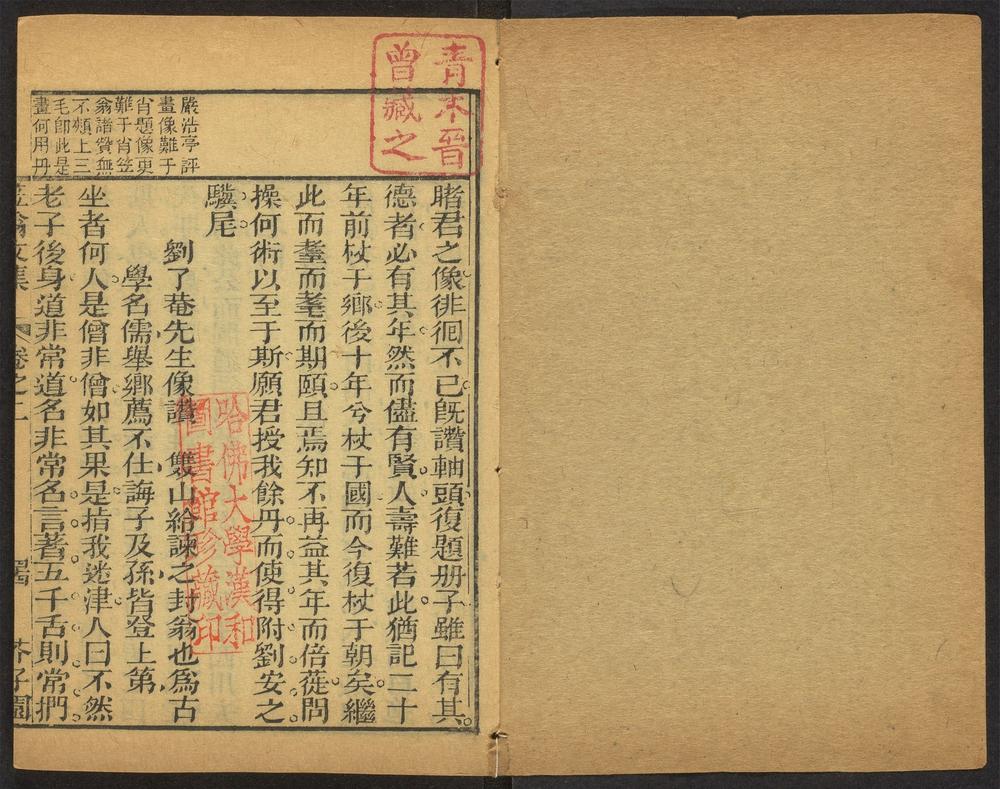 青木晉
曾藏之
嚴浩亭評
畫像難于
肖題像更
難于肖笠
翁諧贊無
不頰上三
毛卽此是
畫何用丹
睹君之像徘徊不已旣讚軸頭復題册子雖曰有其
德者必有其年然而儘有賢人壽難若此猶記二十
年前杖于鄉後十年兮杖于國而今復杖于朝矣繼
此而耋而耄而期頤且焉知不再益其年而倍蓰問
操何術以至于斯願君授我餘丹而使得附劉安之
驥尾
劉了菴先生像讚 雙山給諫之封翁也爲古
學名儒舉鄉薦不仕誨子及孫皆登上第
坐者何人是僧非僧如其果是指我迷津人曰不然
老子後身道非常道名非常名言著五千舌則常捫
笠翁文集 卷之二 芥子園
哈佛大學漢和
圖書館珍藏印